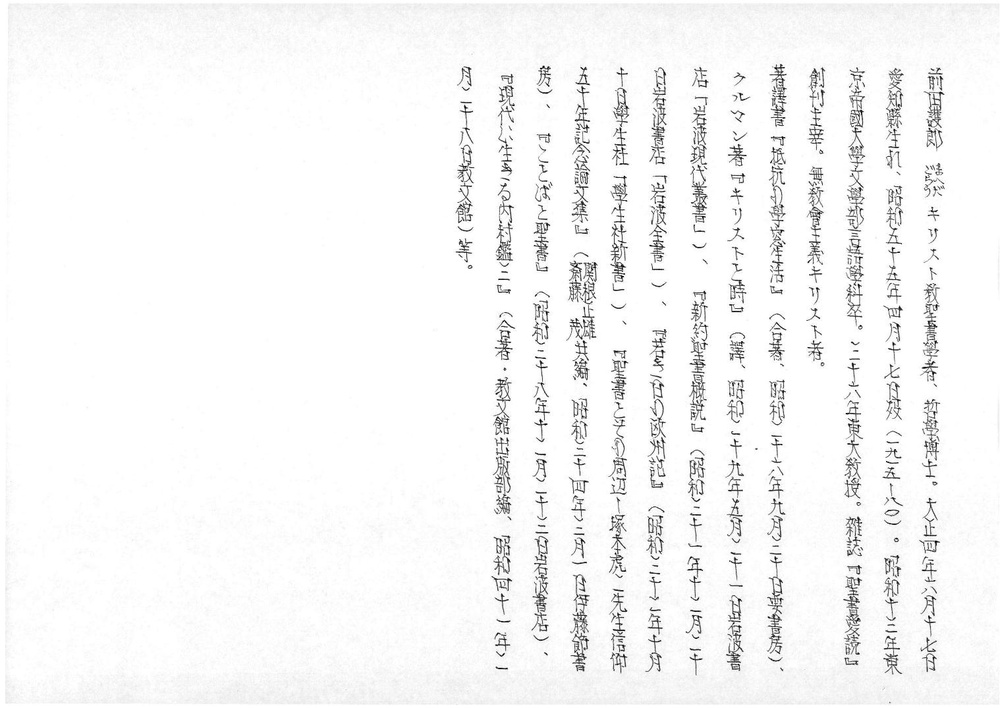 前田護郎 まへだごらう キリスト教聖書學者、哲學博士。大正四年六月十七日
愛知縣生れ、昭和五十五年四月十七日歿（一九一五―八〇）。昭和十三年東
京帝國大學文學部言語學科卒。三十六年東大教授。雜誌『聖書愛読』
創刊主宰。無教會主義キリスト者。
著譯書『抵抗の學窓生活』（合著、昭和二十六年九月三十日要書房）、
クルマン著『キリストと時』（譯、昭和二十九年五月三十一日岩波書
店「岩波現代叢書」）、『新約聖書概説』（昭和三十一年十二月二十
日岩波書店「岩波全書」）、『若き日の欧州記』（昭和三十二年十月
十日學生社「學生社新書」）、『聖書とその周辺―塚本虎二先生信仰
五十年記念論文集』（関根正雄 斎藤 茂共編、昭和三十四年三月一日伊藤節書
房）、『ことばと聖書』（昭和三十八年十二月二十三日岩波書店）、
『現代に生きる内村鑑三』（合著・教文館出版部編、昭和四十一年一
月二十八日教文館）等。